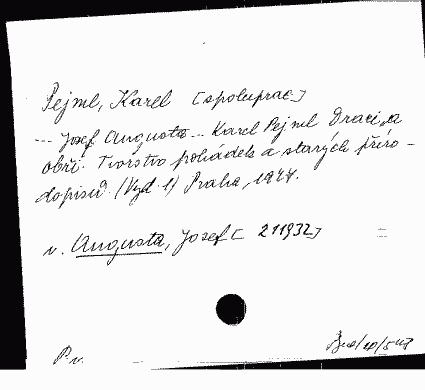 Pejml, Karel [spoluprac]
--- Josef Augusta -- Karel Pejml Draci, a
obři. Tvorstvo pohádek a starých příro-
dopisů. (Vyd. 1) Praha, 1947.
v. Augusta, Josef [ 211932]
P. v.